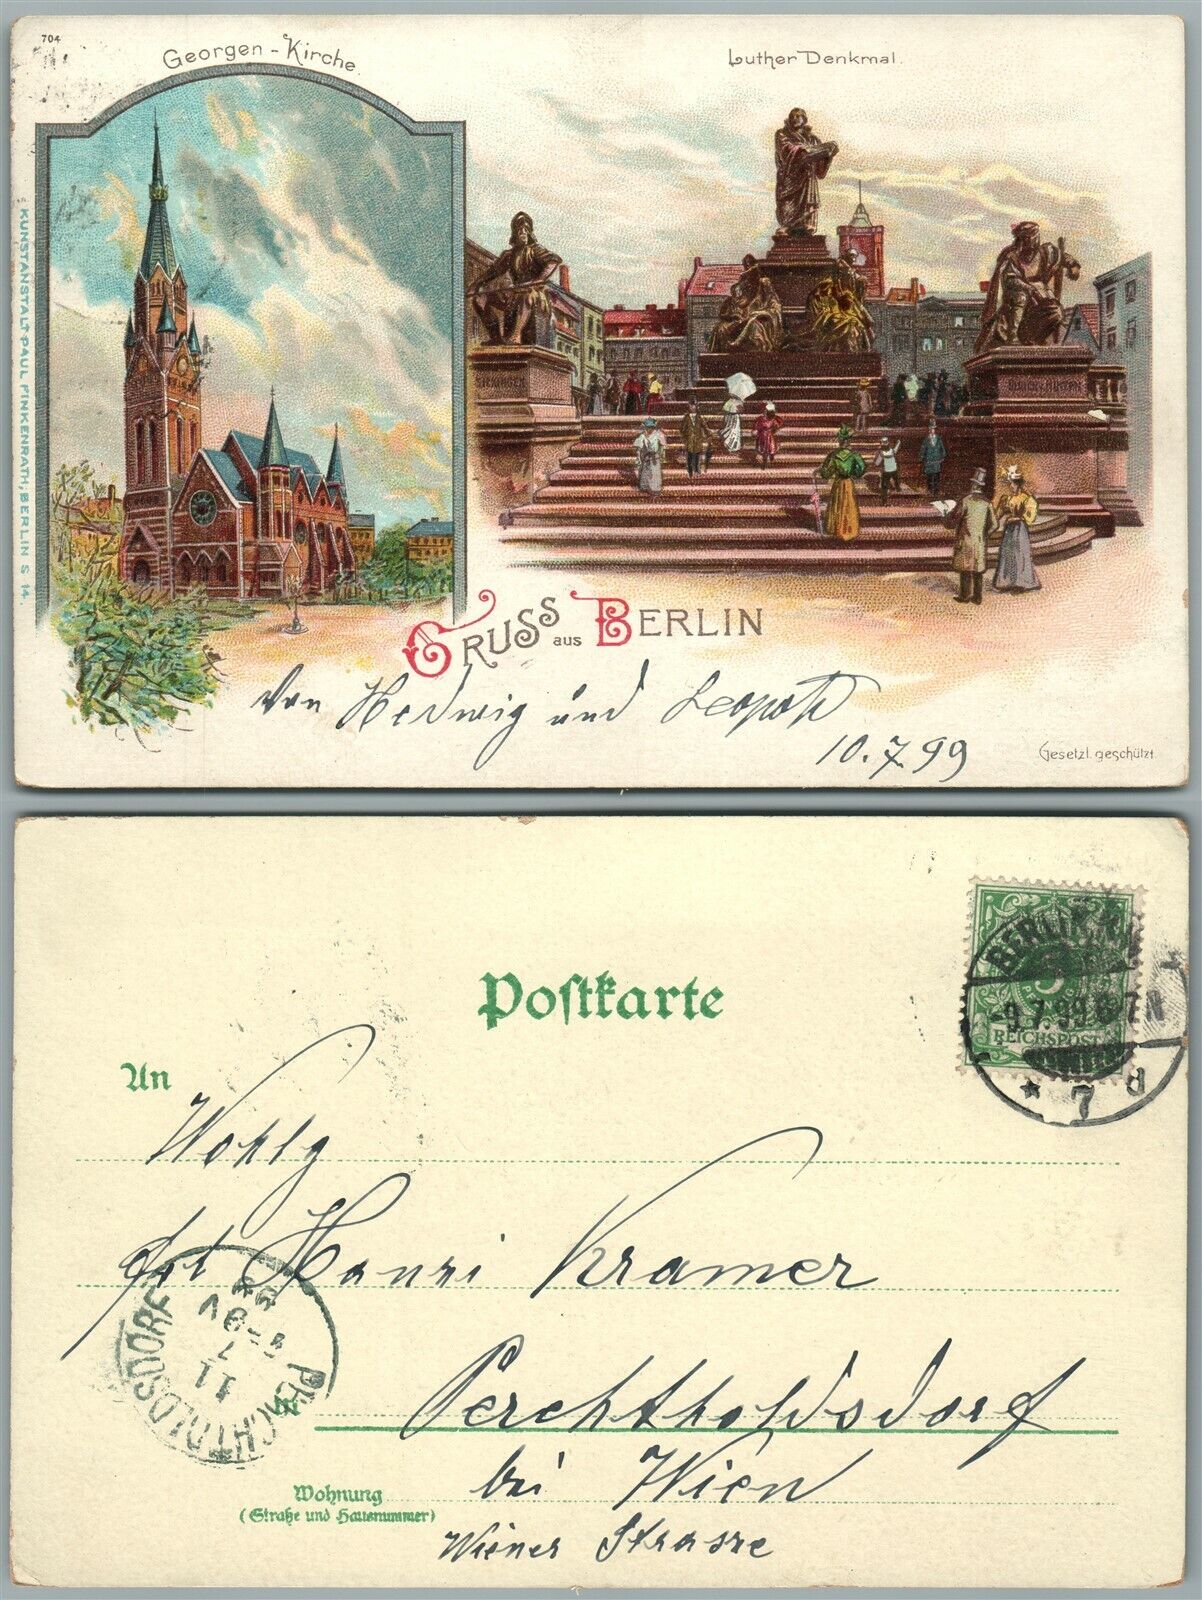 704
Georgen-Kirche.
Luther Denkmal.
KUNSTANSTALT PAUL FINKENRATH, BERLIN S 14.
SICKINGEN
GRUSS aus BERLIN
von Hedwig und Leopold
10.7.99
Gesetzl. geschützt.
Postkarte
An
BERLIN
5
-9.7.99.6-7N
REICHSPOST
* 7 d
Wohlg
Henri Kramer
PERCHTOLDSDORF
11
7
99
in
Perchtholdsdorf
bei Wien
Wohnung
(Straße und Hausnummer)
Wiener Strasse